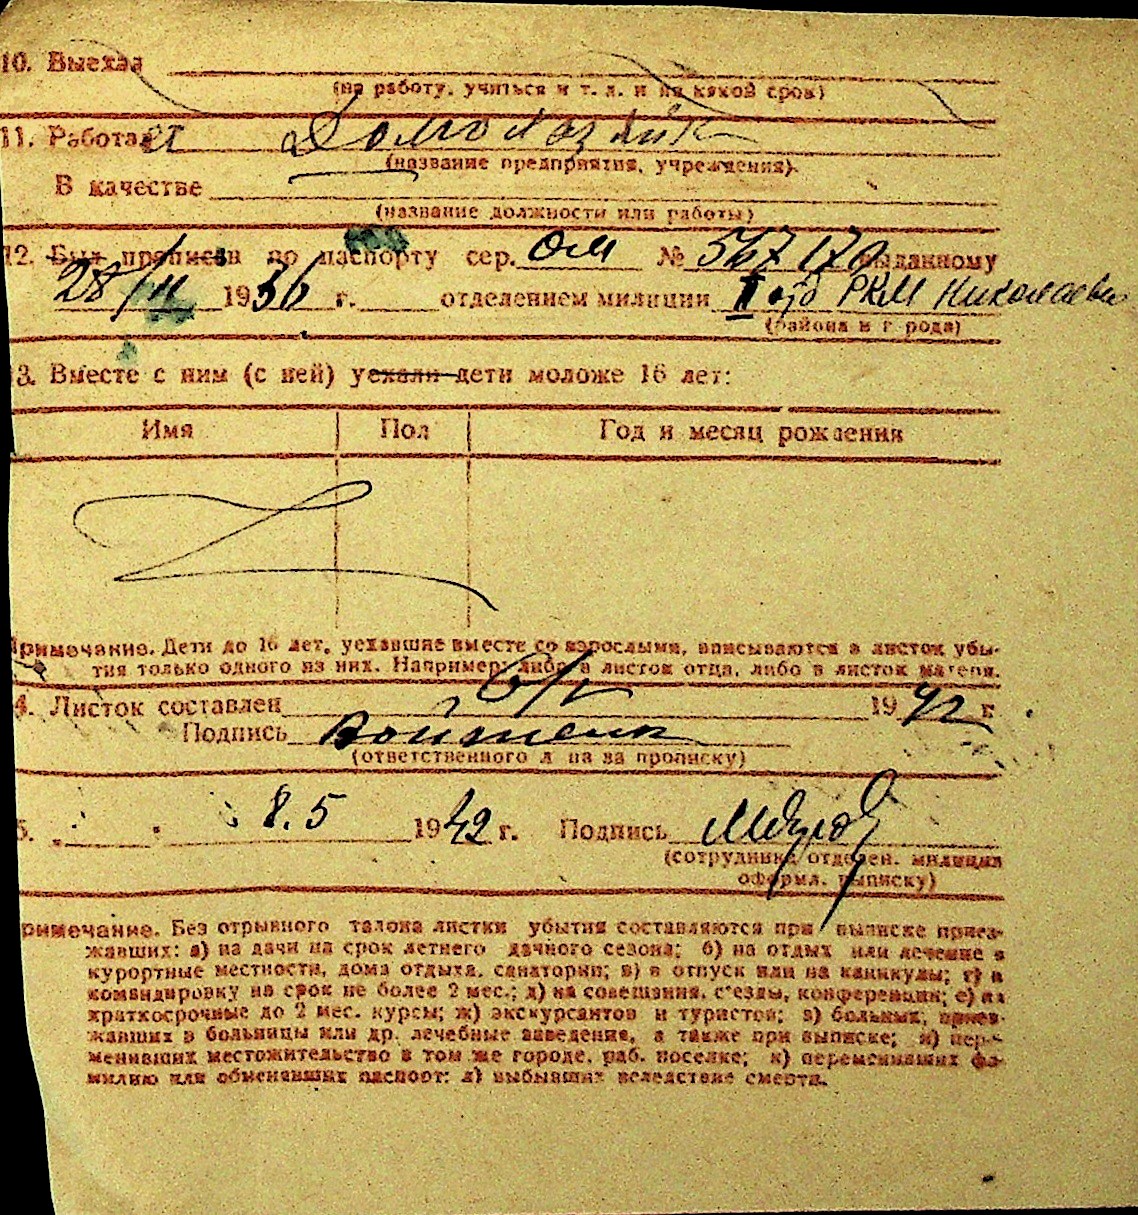 10. Выехал
(на работу, учиться и т. д. и на какой срок)
11. Работает
(название предприятия, учреждения).
В качестве
(название должности или работы)
12. Был прописан по паспорту сер. ОМ № 567170 выданному
28/II 1936 г. отделением милиции I отд РКМ Николаева
(района и г рода)
3. Вместе с ним (с ней) уехали дети моложе 16 лет:
Имя Пол Год и месяц рождения
Примечание. Дети до 16 лет, уехавшие вместе со взрослыми, вписываются в листок убы-
тия только одного из них. Например: либо в листок отца, либо в листок матери.
4. Листок составлен 6/V 1942 г.
Подпись
(ответственного л ца за прописку)
5. 8.5 1942 г. Подпись
(сотрудника отделен. милиции
оформл. выписку)
римечание. Без отрывного талона листки убытия составляются при выписке приез-
жавших: а) на дачи на срок летнего дачного сезона; б) на отдых или лечение в
курортные местности, дома отдыха, санатории; в) в отпуск или на каникулы; г) в
командировку на срок не более 2 мес.; д) на совещания, с'езды, конференции; е) на
краткосрочные до 2 мес. курсы; ж) экскурсантов и туристов; з) больных, приез-
жавших в больницы или др. лечебные заведения, а также при выписке; и) пере-
менивших местожительство в том же городе, раб. поселке; к) переменивших фа-
милию или обменявших паспорт; л) выбывших вследствие смерти.